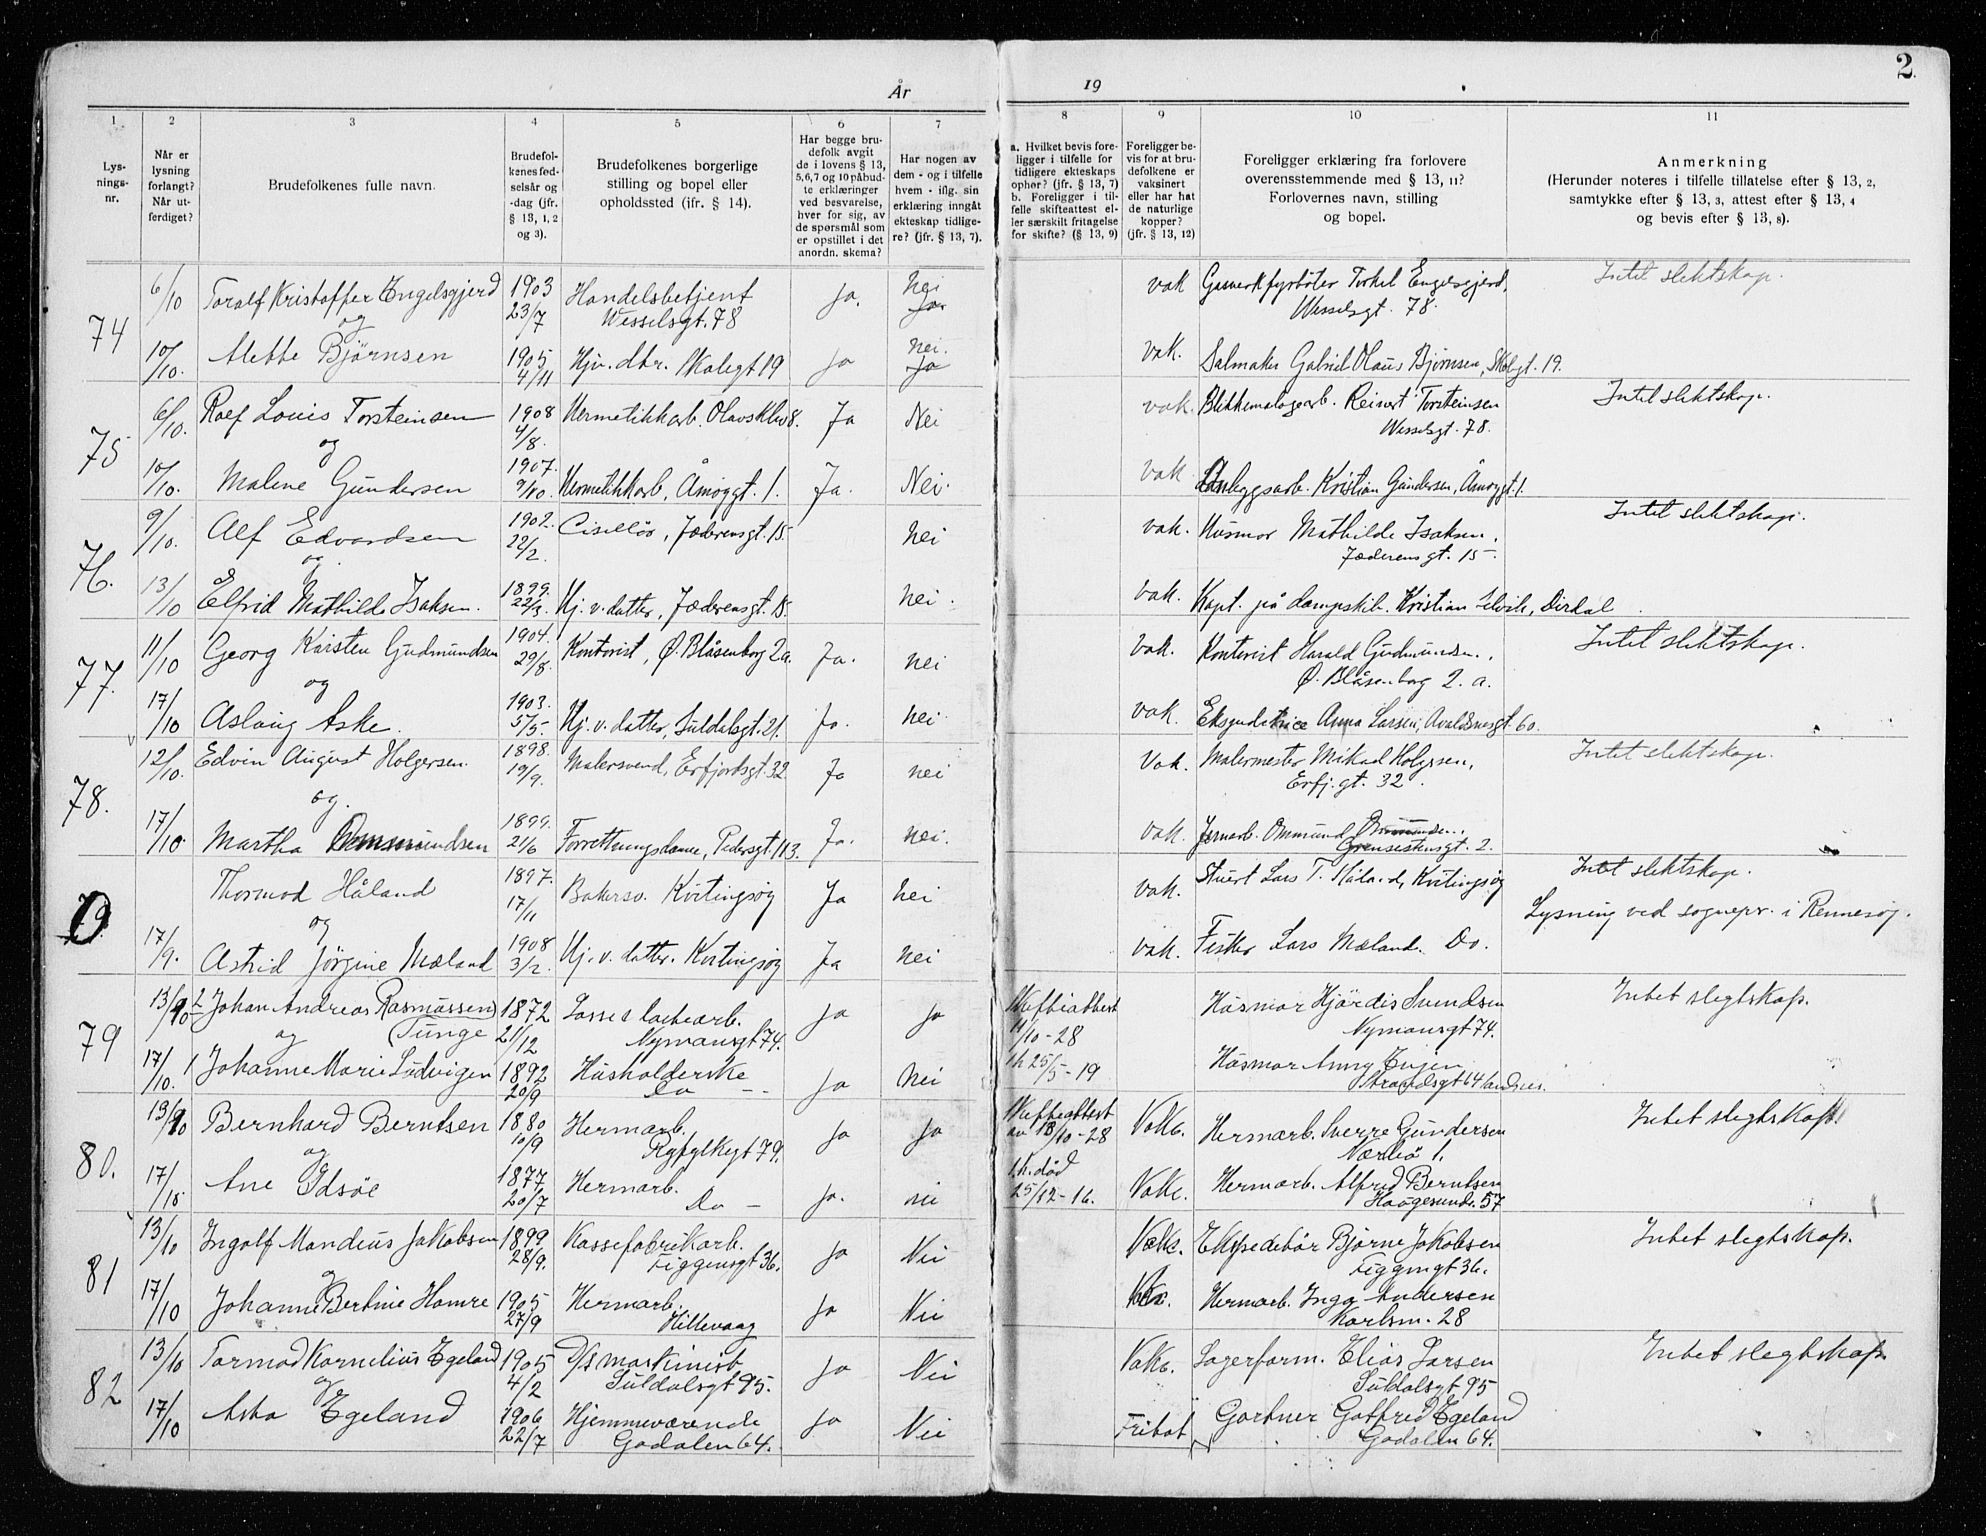 År
19
2
1
2
3
4
5
6
7
8
9
10
11
Lys-
nings-
nr.
Når er
lysning
forlangt?
Når ut-
ferdiget?
Brudefolkenes fulle navn.
Brudefol-
kenes fød-
selsår og
-dag (jfr.
§ 13, 1, 2
og 3).
Brudefolkenes borgerlige
stilling og bopel eller
opholdssted (ifr. § 14).
Har begge bru-
defolk avgit
de i lovens § 13,
5,6,7 og 10 påbud-
te erklæringer
ved besvarelse,
hver for sig, av
de spørsmål som
er opstillet i det
anordn. skema?
Har nogen av
dem - og i tilfelle
hvem - iflg. sin
erklæring inngått
ekteskap tidlige-
re? (jfr. § 13, 7).
a. Hvilket bevis fore-
ligger i tilfelle for
tidligere ekteskaps
ophør? (jfr. § 13, 7)
b. Foreligger i til-
felle skifteattest el-
ler særskilt fritagelse
for skifte? (§ 13, 9)
Foreligger be-
vis for at bru-
defolkene er
vaksinert
eller har hat
de naturlige
kopper?
(jfr. § 13, 12)
Foreligger erklæring fra forlovere
overensstemmende med § 13, 11?
Forlovernes navn, stilling
og bopel.
Anmerkning
(Herunder noteres i tilfelle tillatelse efter § 13, 2,
samtykke efter § 13, 3, attest efter § 13, 4
og bevis efter § 13, 8).
74
6/10 Toralf Kristoffer Engelsgjerd 1903 Handelsbetjent ja. nei vak Gasverkfyrbøter Torkel Engelsgjerd, Intet slektskap.
og 23/7 Wesselsgt. 78 Ja Wesselsgt. 78.
10/10. Alette Bjørnsen 1905 Hjv. dtr. Skolegt 19 ja nei. vak. Salmaker Gabriel Olaus Bjørnsen, Skolgt. 19.
4/11 Ja
75
6/10. Rolf Louis Torsteinsen 1908 Hermetikkarb. Olavsklev 8. Ja Nei vak. Blikkemalagearb. Reinert Torsteinsen Intet slektskap.
og 4/8. Wesselsgt. 78.
10/10. Malene Gundersen 1907. Hermetikkarb, Åmøygt. 1. Ja. Nei. vak Anleggsarb. Kristian Gundersen, Åmøygt. 1.
9/10
76.
9/10. Alf Edvardsen 1902. Cisellør, Jæderensgt. 15. nei vak. Husmor Mathilde Isaksen. Intet slektskap.
og 22/2. Jæderensgt. 15
13/10 Elfrid Mathilde Isaksen. 1899. Hj. v. datter, Jæderensgt. 15. nei. vak. Kapt. på dampskib. Kristian, Dirdal
77.
11/10 Georg Karsten Gudmundsen 1904. Kontorist, Ø. Blåsenborg 2a. Ja. nei vak. Kontorist Harald Gudmundsen. Intet slektskap.
og 29/8. Ø. Blåsenborg 2. a.
17/10 Aslaug Aske. 1903. Hj. v. datter, Suldalsgt. 21. Ja. nei vak. Anna Larsen, Avaldsnesgt. 60.
5/5.
78.
12/10. Edvin August Holgersen 1898. Malersvend, Erfjordsgt. 32 Ja nei Vak. Malermester Mikal Holgersen, Intet slektskap.
og. 19/9. Erfj. gt. 32.
17/10 Martha Ommundsen 1899. Forretningsdame, Pedersgt. 113. Ja. nei. vak. Jernarb. Ommund Ommundsen.
21/6 2.
Thormod Håland 1897. Bakersv. Kvitingsøy Ja nei vak. Stuert Lars T. Håland, Kvitingsøy Intet slektskap.
og 17/11 Lysning ved sognepr. i Rennesøy.
17/9. Astrid Jørgine Mæland 1908 Hj. v. datter. Kvitingsøy Ja nei vak. Fisker Lars Mæland. Do.
3/2.
79
13/10 2 Johan Andreas Rasmussen 1872 ja ja Skifteattest Husmor Hjørdis Svendsen Intet slegtskap.
og Tunge 21/12 Nymansgt 74. 11/10-28 Nymansgt 74.
17/10. 1 Johanne Marie Ludvigen 1892 Husholderske ja Nei 25/5-19 Husmor Anny
20/9 Do Strandsgt 64 Sandnes.
80.
13/10 Bernhard Berntsen 1880 Hermarb. ja ja Skifteattest Vakc. Hermarb. Sverre Gundersen Intet slegtskap.
og 10/9 Ryfylkegt 79. av 13/10-28 1.
17/10 Ane Idsøe 1877 Hermarb. ja. nei 1.k. død Vakc. Hermarb. Alfred Berntsen
20/7 Do - 25/12-16. Haugesundg. 57
81
13/10 Ingolf Mandius Jakobsen 1899 Kassefabrikarb. ja Nei Vakc. Ekspeditør Bjarne Jakobsen Intet slegtskap.
og 28/9. Figgensgt 36. Figgengt 36.
17/10 Johanne Bertine Hamre 1905 Hermarb. ja Nei Hermarb. Inga Andersen
27/9 Hillevaag Karlsm. 28
82
13/10 Tormod Kornelius Egeland 1905 D/s maskinist ja Nei Vakc. Lagerform. Elias Larsen Intet slegtskap.
og 4/2 Suldalsgt 95. Suldalsgt 95
17/10 Asta Egeland 1906 Hjemmeværende ja Nei Fribat Gartner Gotfred Egeland
22/7 Godalen 64. Godalen 64.